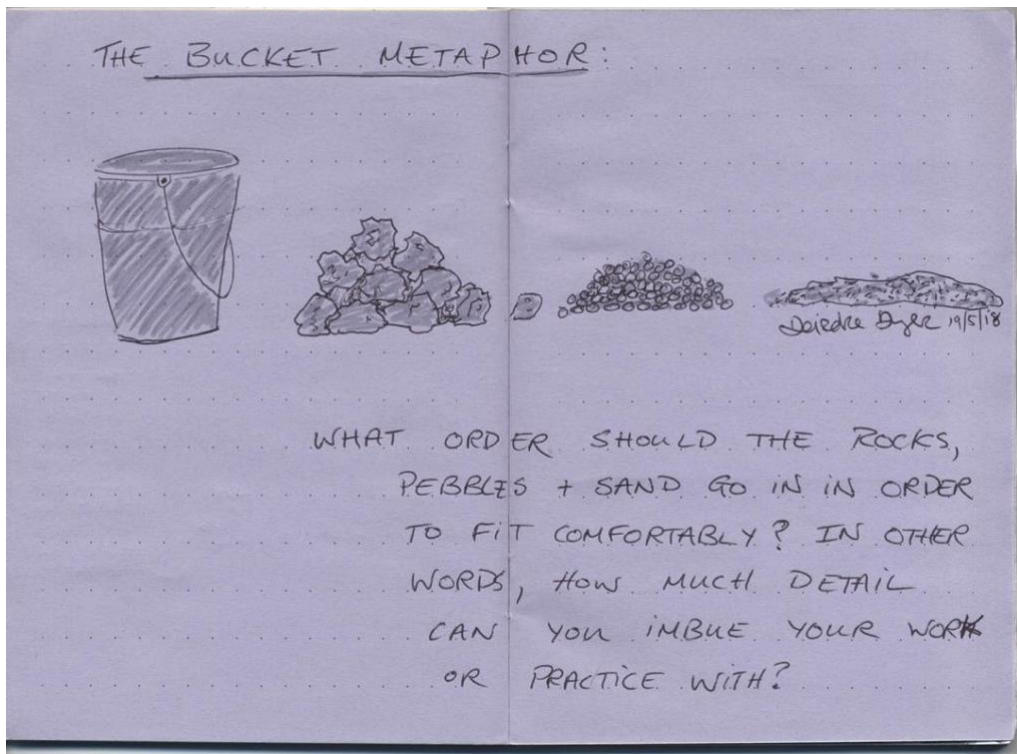 THE BUCKET METAPHOR:
Deirdre Dyer 19/5/18
WHAT ORDER SHOULD THE ROCKS,
PEBBLES + SAND GO IN IN ORDER
TO FIT COMFORTABLY? IN OTHER
WORDS, HOW MUCH DETAIL
CAN YOU IMBUE YOUR WORK
OR PRACTICE WITH?